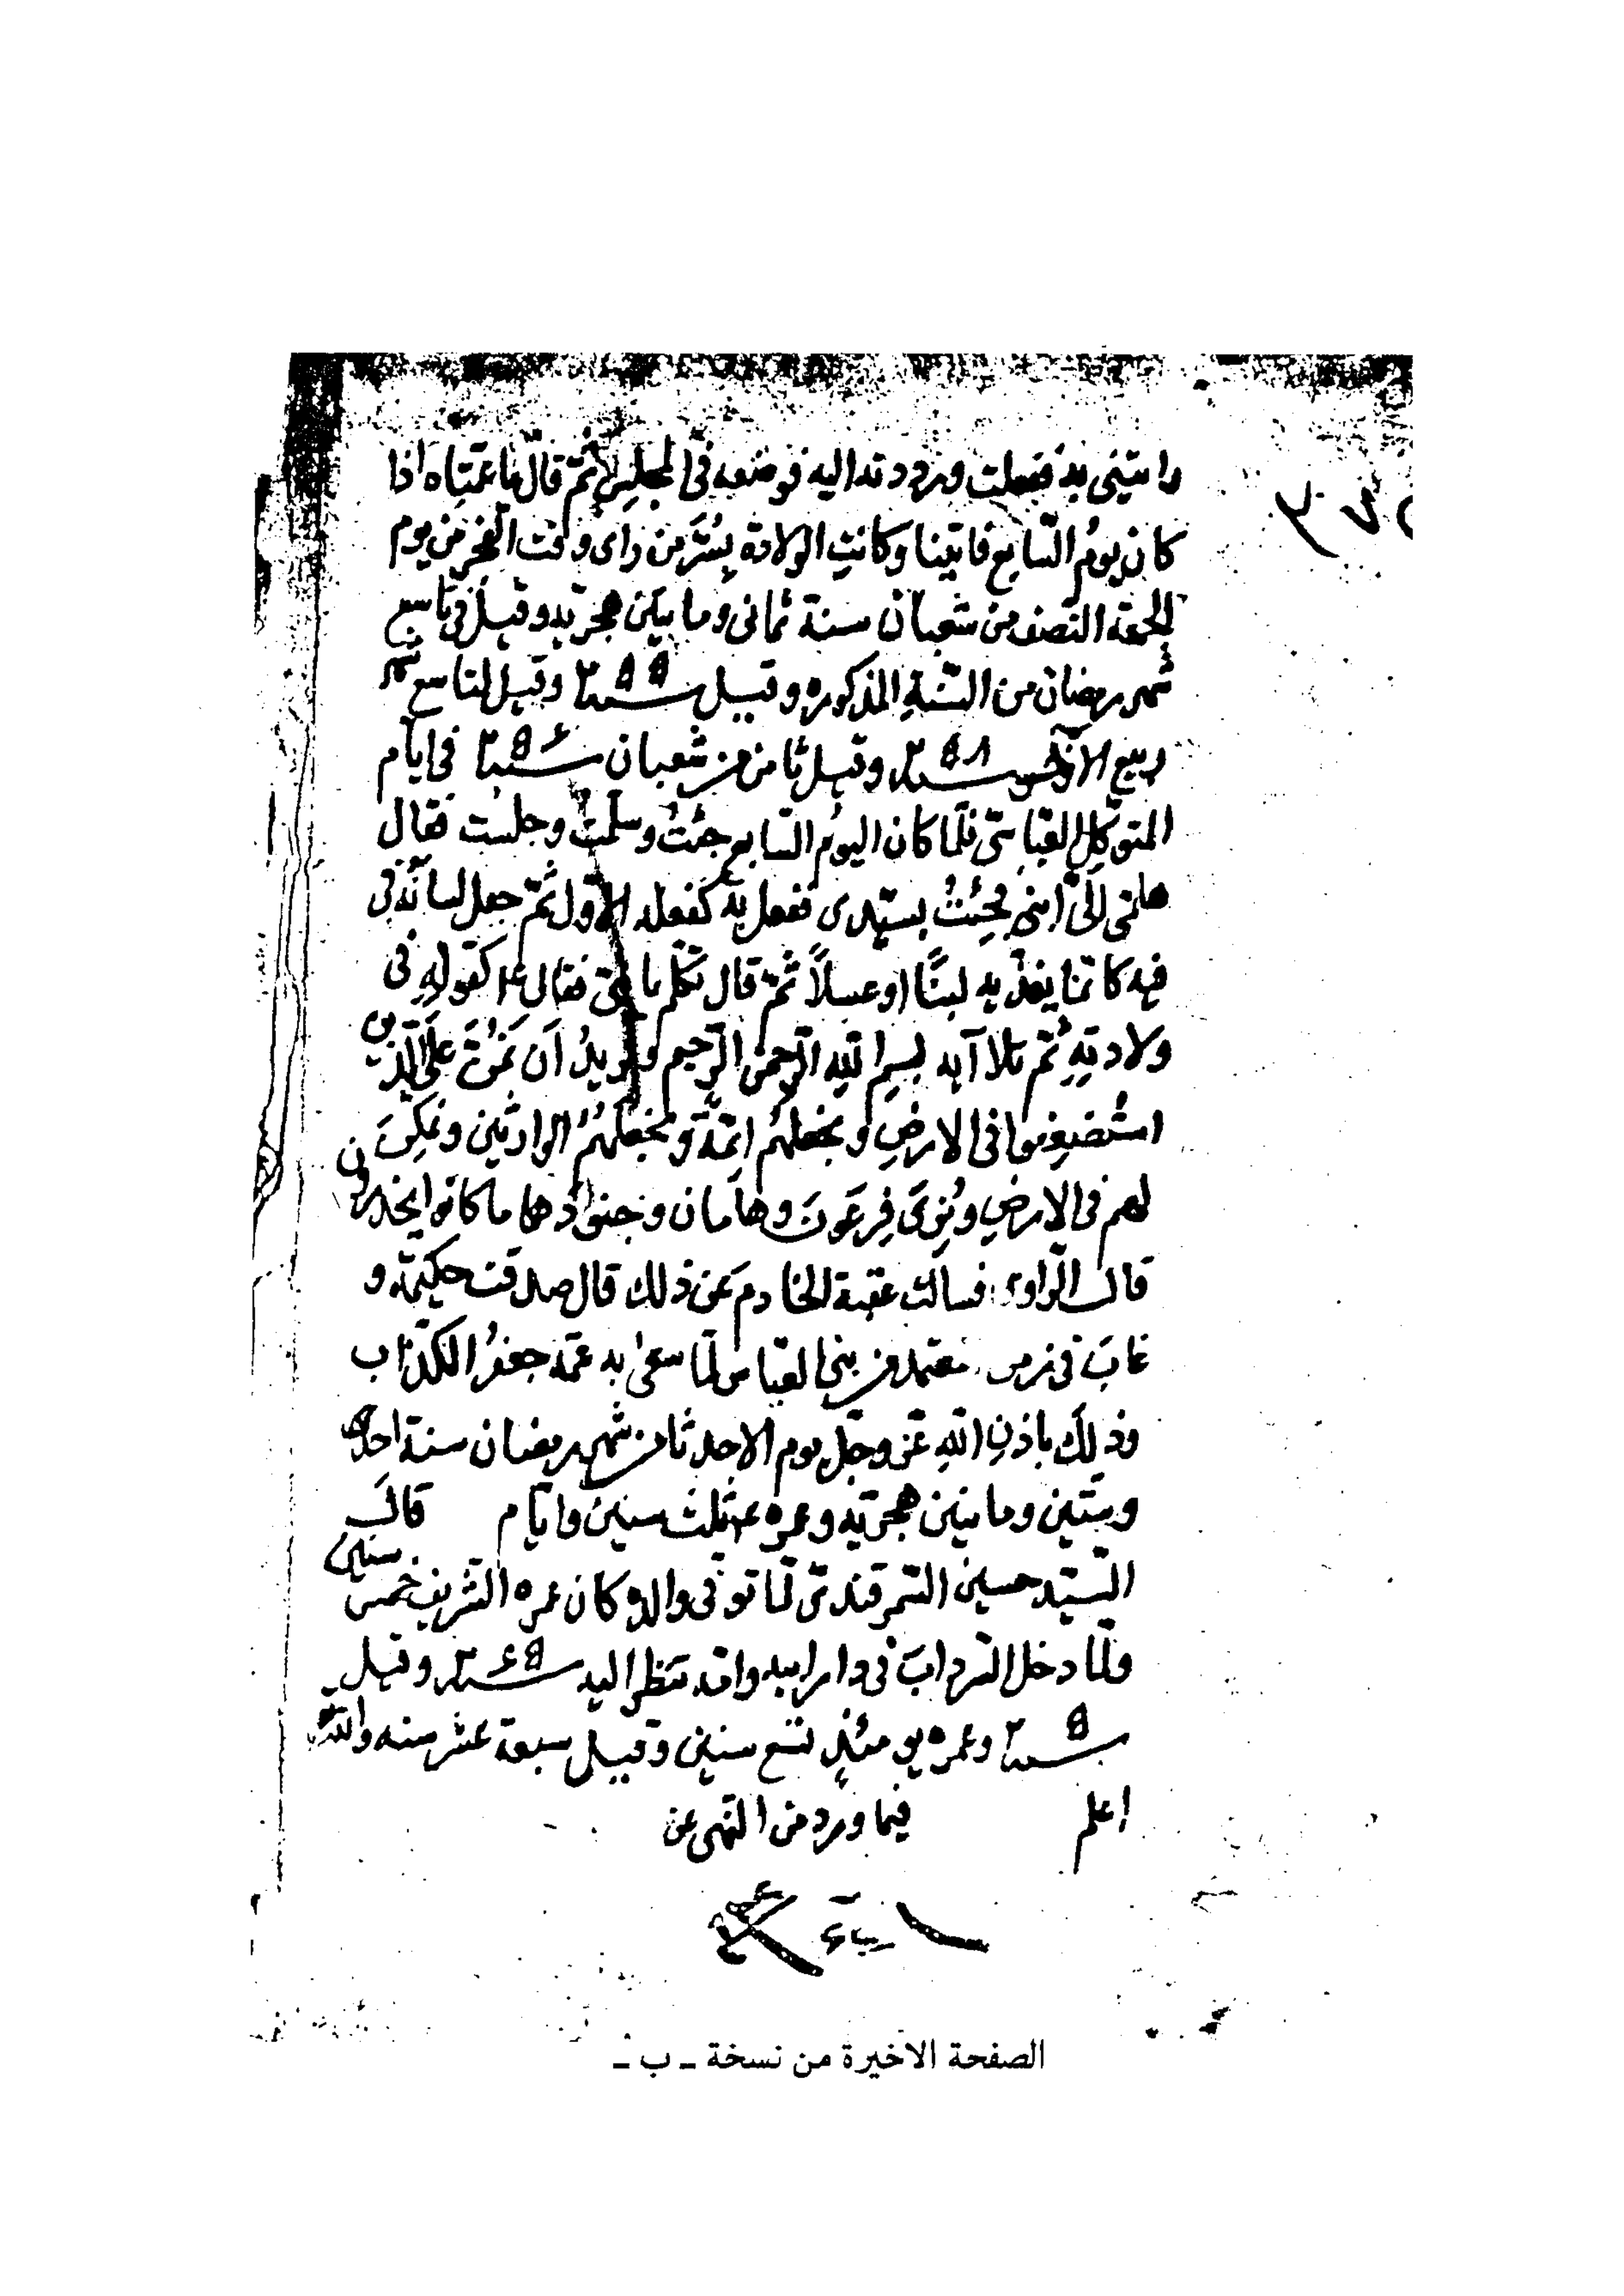 واتيني به ففعلت ورددته اليه فوضعه في المجلس ثم قال يا عمتاه اذا
كان يوم السابع فاتينا وكانت الولادة بسر من راى وقت الفجر من يوم
الجمعة النصف من شعبان سنة ثماني وماتين هجرية وقيل في تاسع
شهر رمضان من السنة المذكوره وقيل سنة ٢٥٥ وقيل لتاسع شهر
ربيع الآخر سنة ٢٥٨ وقيل ثامن من شعبان سنة ٢٥٤ في ايام
المتوكل العباسي فلما كان اليوم السابع جئت وسلمت وجلست فقال
هلمي الي ابني فجئت بسيدي ففعل به كفعله الاول ثم جعل لسانه في
فيه كانما يغذيه لبنًا او عسلاً ثم قال تكلم يا بني فقال كقوله في
ولادته ثم تلا آية بسم الله الرحمن الرحيم ونريد أن نمن على الذين
استضعفوا في الارض ونجعلهم ائمة ونجعلهم الوارثين ونمكن
لهم في الارض ونري فرعون وهامان وجنودهما ما كانوا يحذرون
قال الراوي فسالت عقبة الخادم عن ذلك قال صدقت حكيمة و
غاب في زمن معتمد من بني العباس لما سعى به عمه جعفر الكذاب
وذلك باذن الله عز وجل يوم الاحد ثامن شهر رمضان سنة احدى
وستين وماتين هجرية وعمره ثلث سنين وايام قال
السيد حسين السمرقندي لما توفي والده كان عمره الشريف خمس سنين
ولما دخل السرداب في دار ابيه وامه تنظر اليه سنة ٢٦٥ وقيل
سنة وعمره يومئذ تسع سنين وقيل سبعة عشر سنه والله
اعلم فيما ورد من النهى عن
الصفحة الاخيرة من نسخة ـ ب ـ